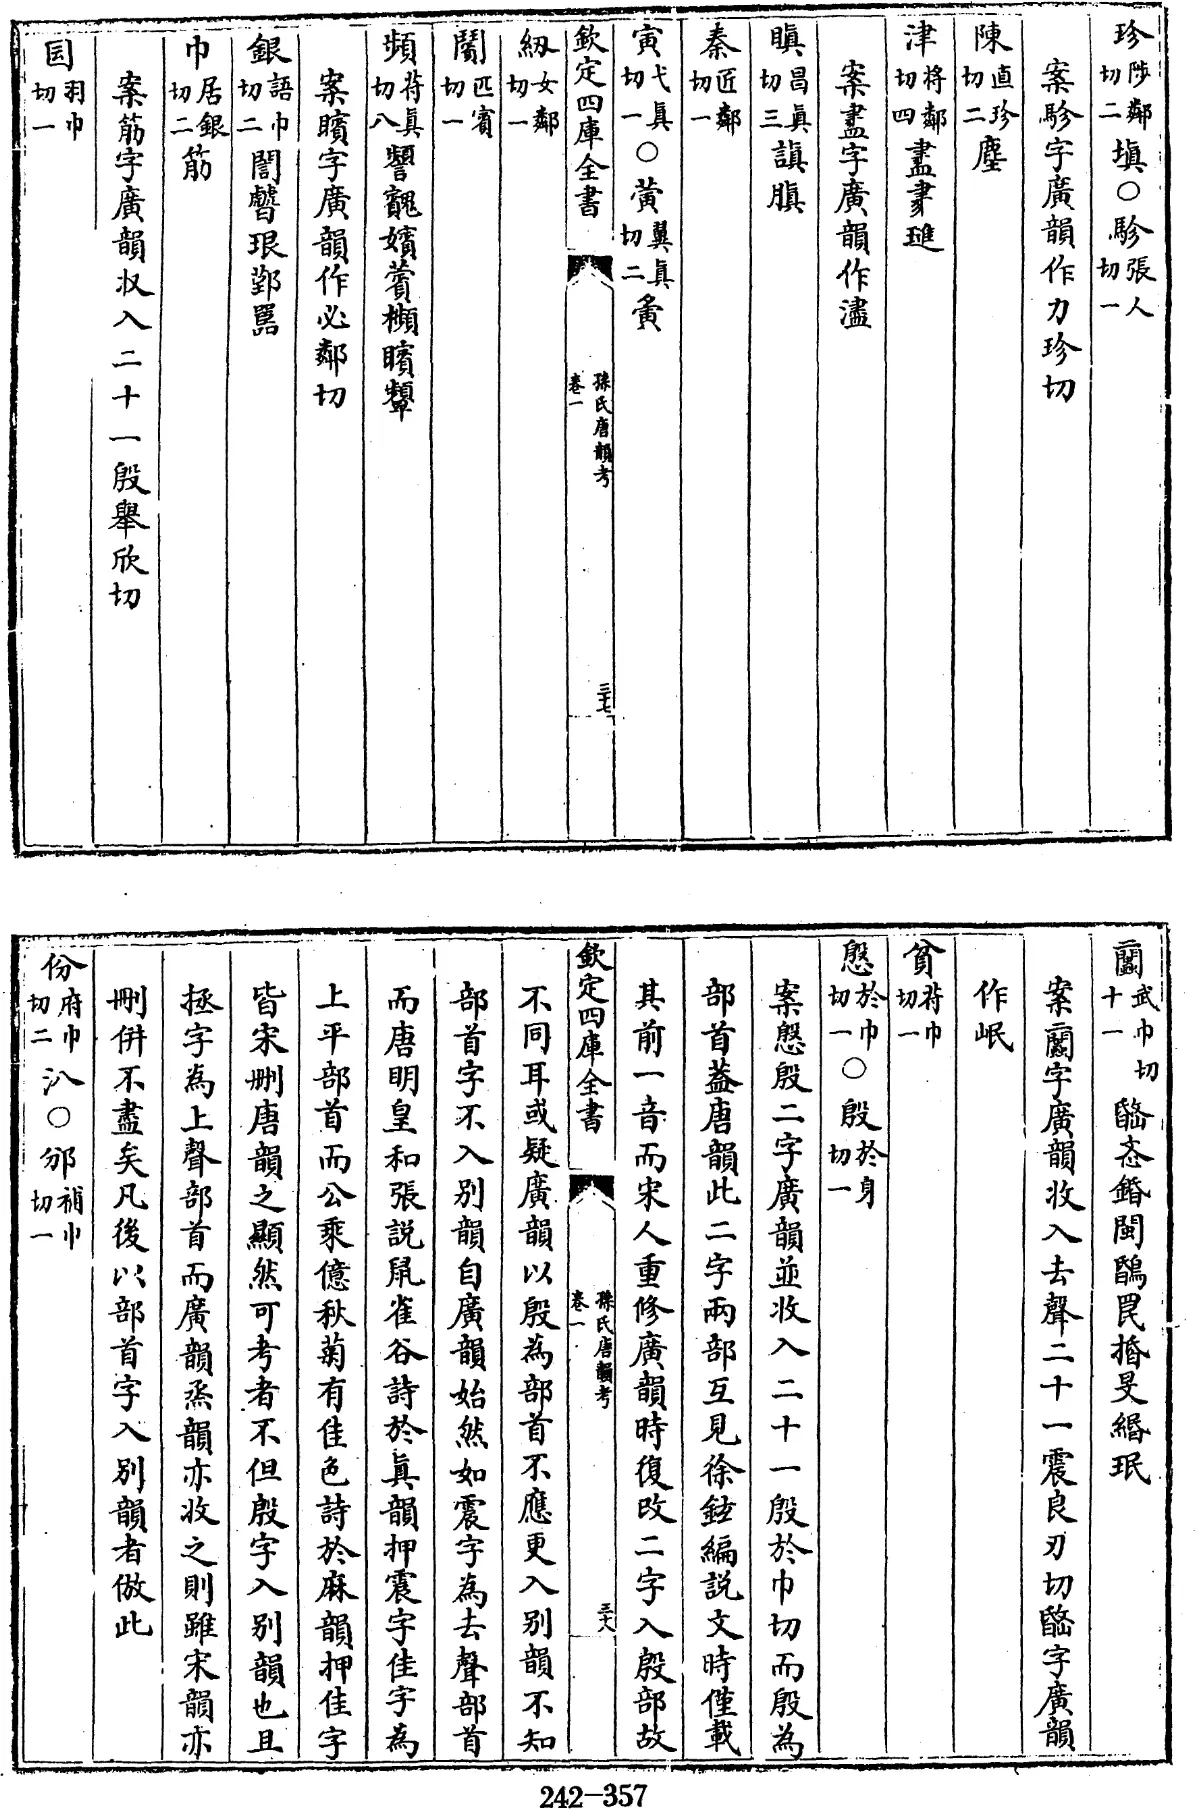 珍陟鄰切二塡○駗張人切一
案駗字廣韻作力珍切
陳直珍切二塵
津将鄰切四𧗁𦘔璡
案𧗁字廣韻作濜
瞋昌眞切三謓䐜
秦匠鄰切一
寅弋眞切一○䔬翼眞切二夤
欽定四庫全書
孫氏唐韻考
卷一
三十七
紉女鄰切一
闠匹賓切一
頻符眞切八顰䰠嬪薲櫇矉顰
案矉字廣韻作必鄰切
銀語巾切二誾㹞珢鄞嚚
巾居銀切二筋
案筋字廣韻收入二十一殷舉欣切
囩羽巾切一
閺武巾切十一㟭忞鍲閩鴖罠捪旻緡珉
案閺字廣韻收入去聲二十一震良刃切㟭字廣韻
作岷
貧符巾切一
慇於巾切一○殷於身切一
案慇殷二字廣韻並收入二十一殷於巾切而殷為
部首蓋唐韻此二字兩部互見徐鉉編說文時僅載
其前一音而宋人重修廣韻時復改二字入殷部故
欽定四庫全書
孫氏唐韻考
卷一
三十八
不同耳或疑廣韻以殷為部首不應更入別韻不知
部首字不入別韻自廣韻始然如震字為去聲部首
而唐明皇和張說鼠雀谷詩於眞韻押震字佳字為
上平部首而公乘億秋菊有佳色詩於麻韻押佳字
皆宋刪唐韻之顯然可考者不但殷字入別韻也且
拯字為上聲部首而廣韻烝韻亦收之則雖宋韻亦
刪併不盡矣凡後以部首字入別韻者倣此
份府巾切二汃○邠補巾切一
242-357